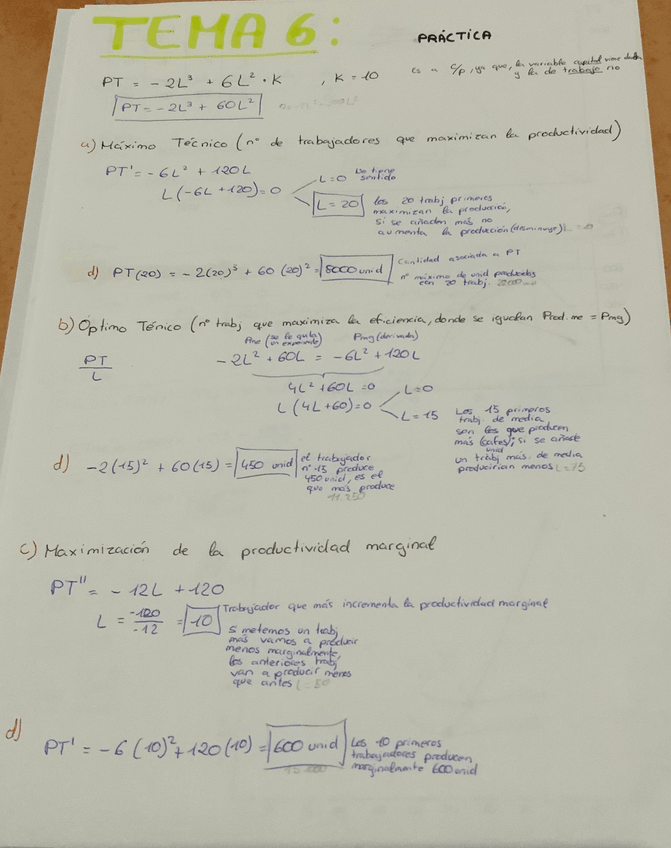 TEMA 6:
PRÁCTICA
PT = -2L³ + 6L² · K , K = 10
Es a c/p, ya que, la variable capital viene dada
y la de trabajo no
PT = -2L³ + 60L²
a) Máximo Técnico (nº de trabajadores que maximizan la productividad)
PT' = -6L² + 120L
L(-6L + 120) = 0
L = 0 No tiene
sentido
L = 20
los 20 trabj primeros
maximizan la producción,
si se añaden más no
aumenta la producción (disminuye)
d) PT(20) = -2(20)³ + 60(20)² = 8000 unid
Cantidad asociada a PT
nº máximo de unid producidas
con 20 trabj.
b) Óptimo Ténico (nº trabj que maximiza la eficiencia, donde se igualan Prod. me = Pmg)
PT
L
Pme (se le quita
un exponente)
Pmg (derivada)
-2L² + 60L = -6L² + 120L
4L² + 60L = 0
L(4L + 60) = 0
L = 0
L = 15
Los 15 primeros
trabj. de media
son los que producen
más (cafés); si se añade
un trabj más. de media
producirían menos L = 75
d) -2(15)² + 60(15) = 450 unid
el trabajador
nº 15 produce
450 unid, es el
que más produce
11.250
c) Maximización de la productividad marginal
PT'' = -12L + 120
L = -120 / -12 = 10
Trabajador que más incrementa la productividad marginal
Si metemos un trabj
más vamos a producir
menos marginalmente,
los anteriores trabj
van a producir menos
que antes L = 50
d)
PT' = -6(10)² + 120(10) = 600 unid
Los 10 primeros
trabajadores producen
marginalmente 600 unid